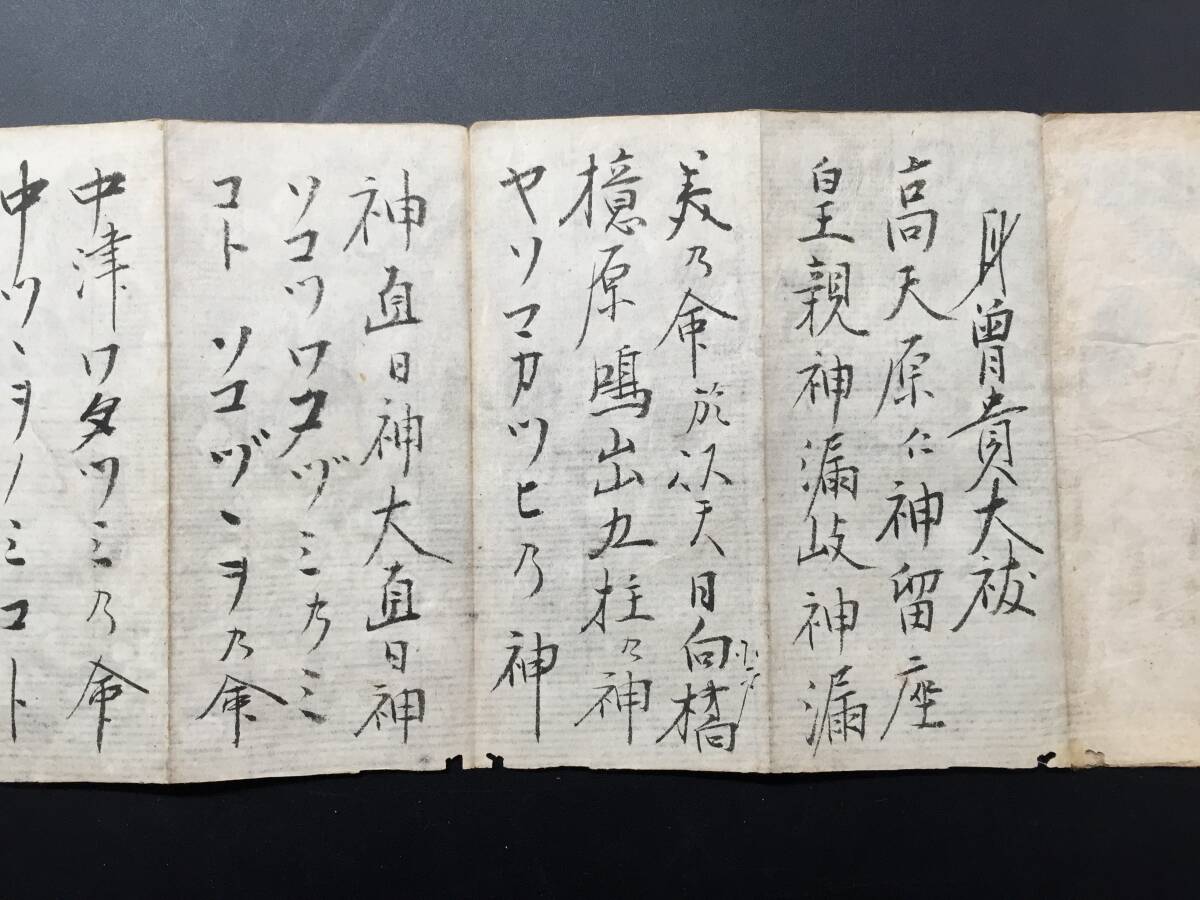 身曽貴大祓
高天原仁神留座
皇親神漏岐神漏
美乃命於以天日向橘
檍原鳴出九柱乃神
ヤソマカツヒ乃神
神直日神大直日神
ソコツワタヅミ乃ミ
コト ソコヅヽヲ乃命
中津ワタツミ乃命
中ツヽヲノミコト